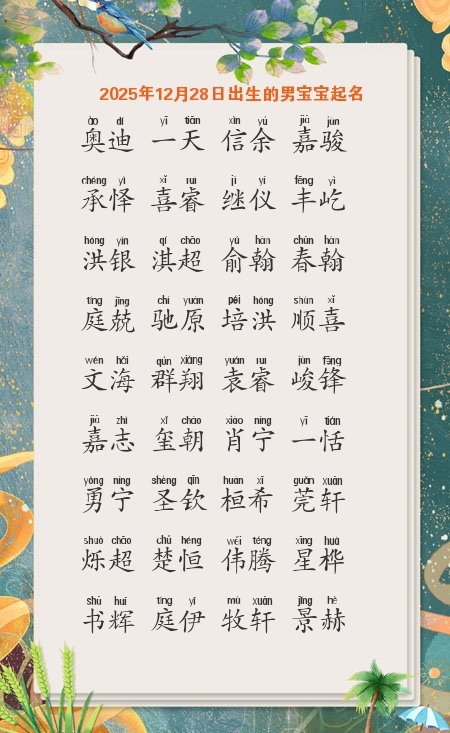 2025年12月28日出生的男宝宝起名
ào dí yī tiān xìn yú jiā jùn
奥迪 一天 信余 嘉骏
chéng yì xǐ ruì jì yí fēng yì
承怿 喜睿 继仪 丰屹
hóng yín qí chāo yú hàn chūn hàn
洪银 淇超 俞翰 春翰
tíng jīng chí yuán péi hóng shùn xǐ
庭兢 驰原 培洪 顺喜
wén hǎi qún xiáng yuán ruì jùn fēng
文海 群翔 袁睿 峻锋
jiā zhì xǐ cháo xiào níng yī tián
嘉志 玺朝 肖宁 一恬
yǒng níng shèng qīn huán xī guǎn xuān
勇宁 圣钦 桓希 莞轩
shuò chāo chǔ héng wěi téng xīng huà
烁超 楚恒 伟腾 星桦
shū huī tíng yī mù xuān jǐng hè
书辉 庭伊 牧轩 景赫